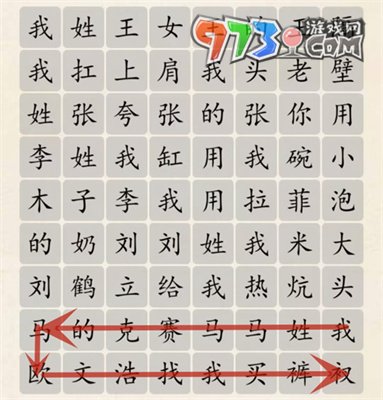 我姓王女王的王
973游戏网
.COM
我扛上肩我头老壁
姓张夸张的张你用
李姓我缸用我碗小
木子李我用拉菲泡
的奶刘刘姓我米大
刘鹤立给我热炕头
马的克赛马马姓我
欧文浩找我买裤衩